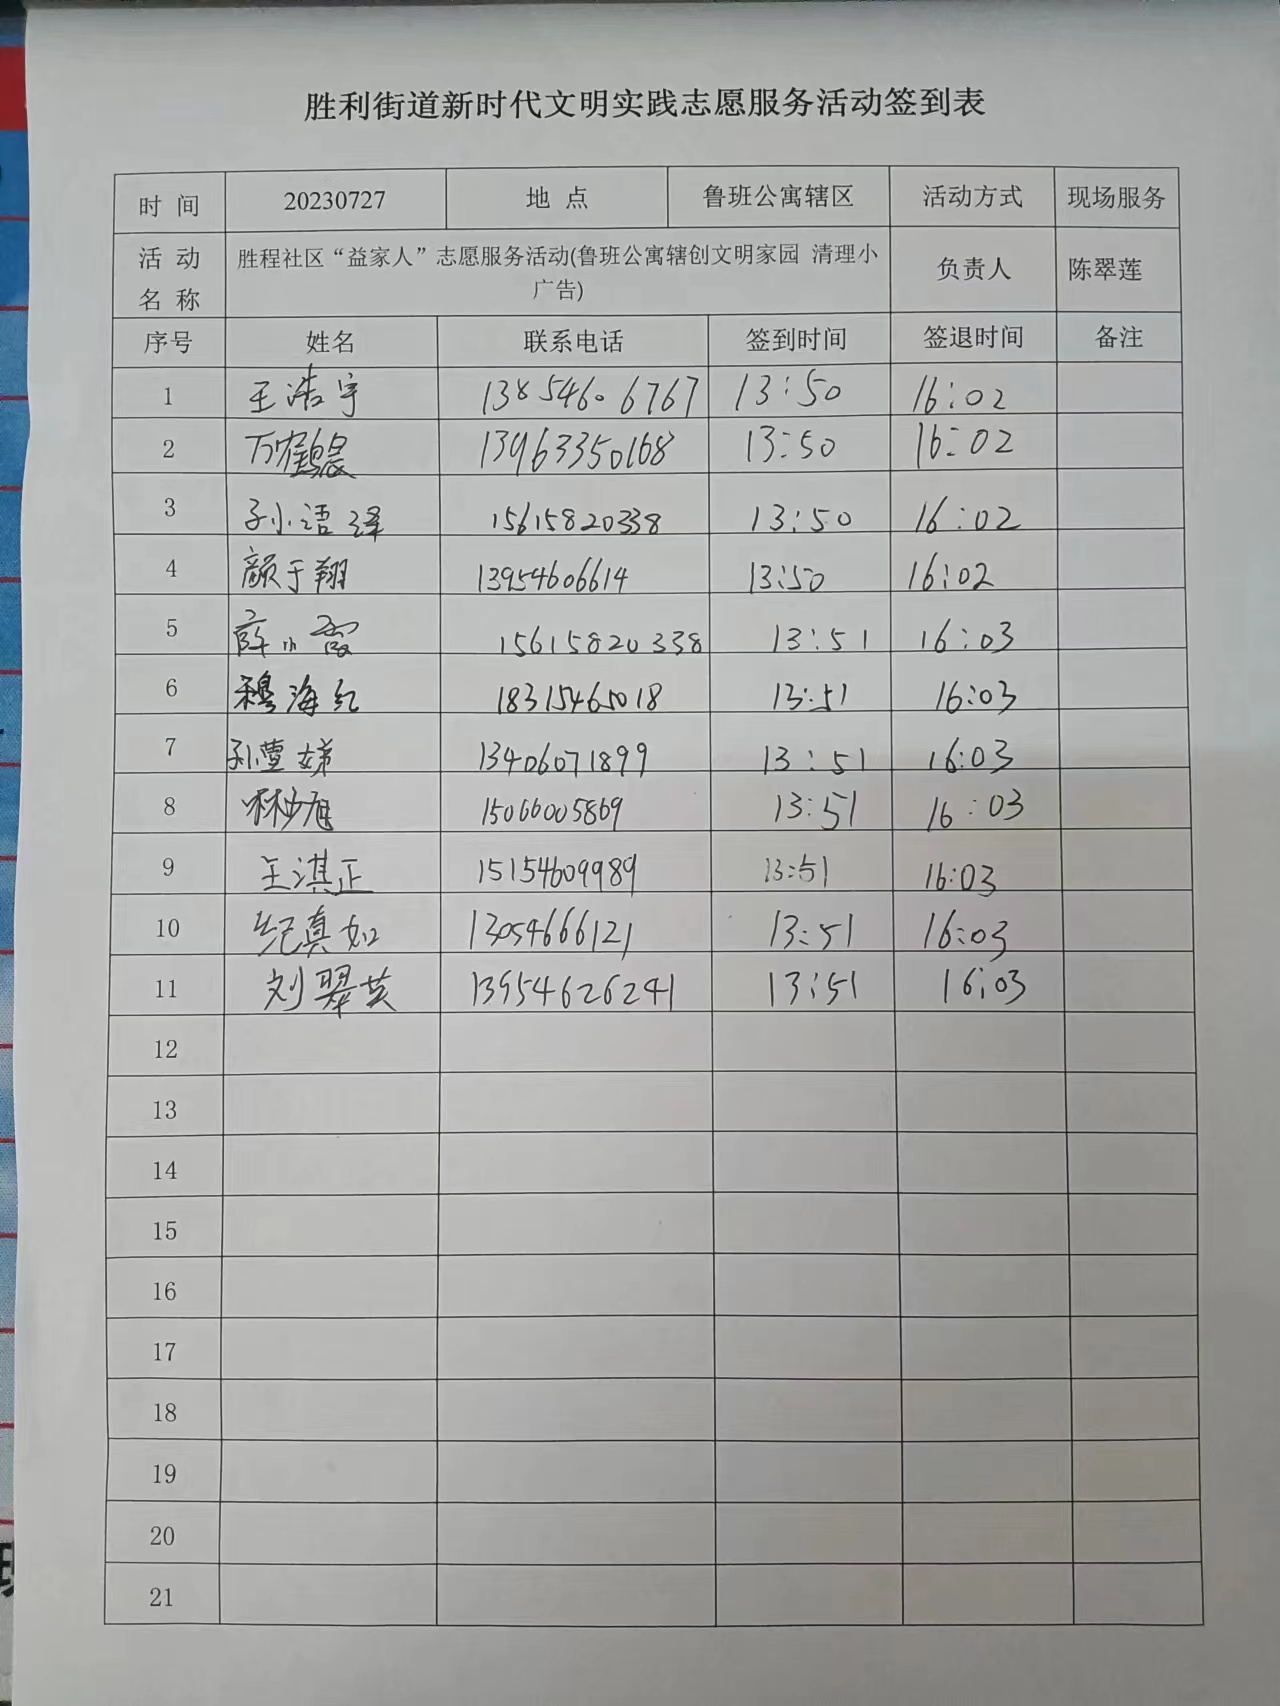 胜利街道新时代文明实践志愿服务活动签到表
时 间 20230727 地 点 鲁班公寓辖区 活动方式 现场服务
活 动 名 称 胜程社区“益家人”志愿服务活动(鲁班公寓辖创文明家园 清理小广告) 负责人 陈翠莲
序号 姓名 联系电话 签到时间 签退时间 备注
1 王浩宇 13854606767 13:50 16:02
2 万鹤晨 13963350168 13:50 16:02
3 孙语泽 15615820338 13:50 16:02
4 颜于翔 13954606614 13:50 16:02
5 薛小霞 15615820338 13:51 16:03
6 穆海红 18315465018 13:51 16:03
7 孙萱娣 13406071899 13:51 16:03
8 15066005869 13:51 16:03
9 王淇正 15154609989 13:51 16:03
10 纪真如 13054666121 13:51 16:03
11 刘翠英 13954626241 13:51 16:03
12
13
14
15
16
17
18
19
20
21